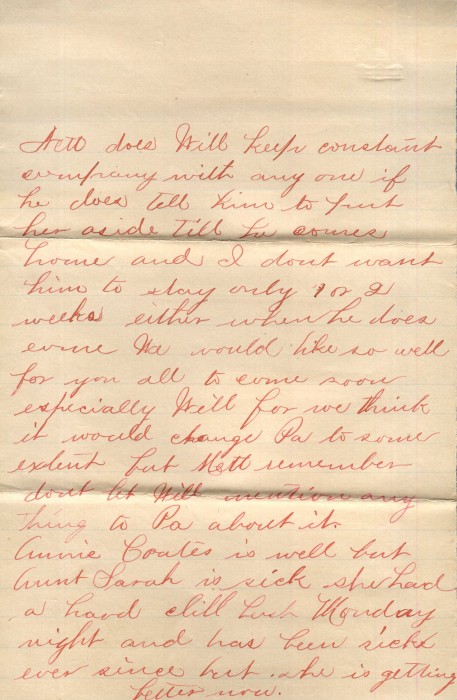 Matt does Will keep constant
company with any one if
he does tell him to put
her aside till he comes
home and I dont want
him to stay only 1 or 2
weeks either when he does
come Ma would like so well
for you all to come soon
especially Will for we think
it would change Pa to some
extent but Matt remember
dont let Will mention any
thing to Pa about it.
Annie Coates is well but
Aunt Sarah is sick she had
a hard chill last Monday
night and has been sick
ever since but she is getting
better now.